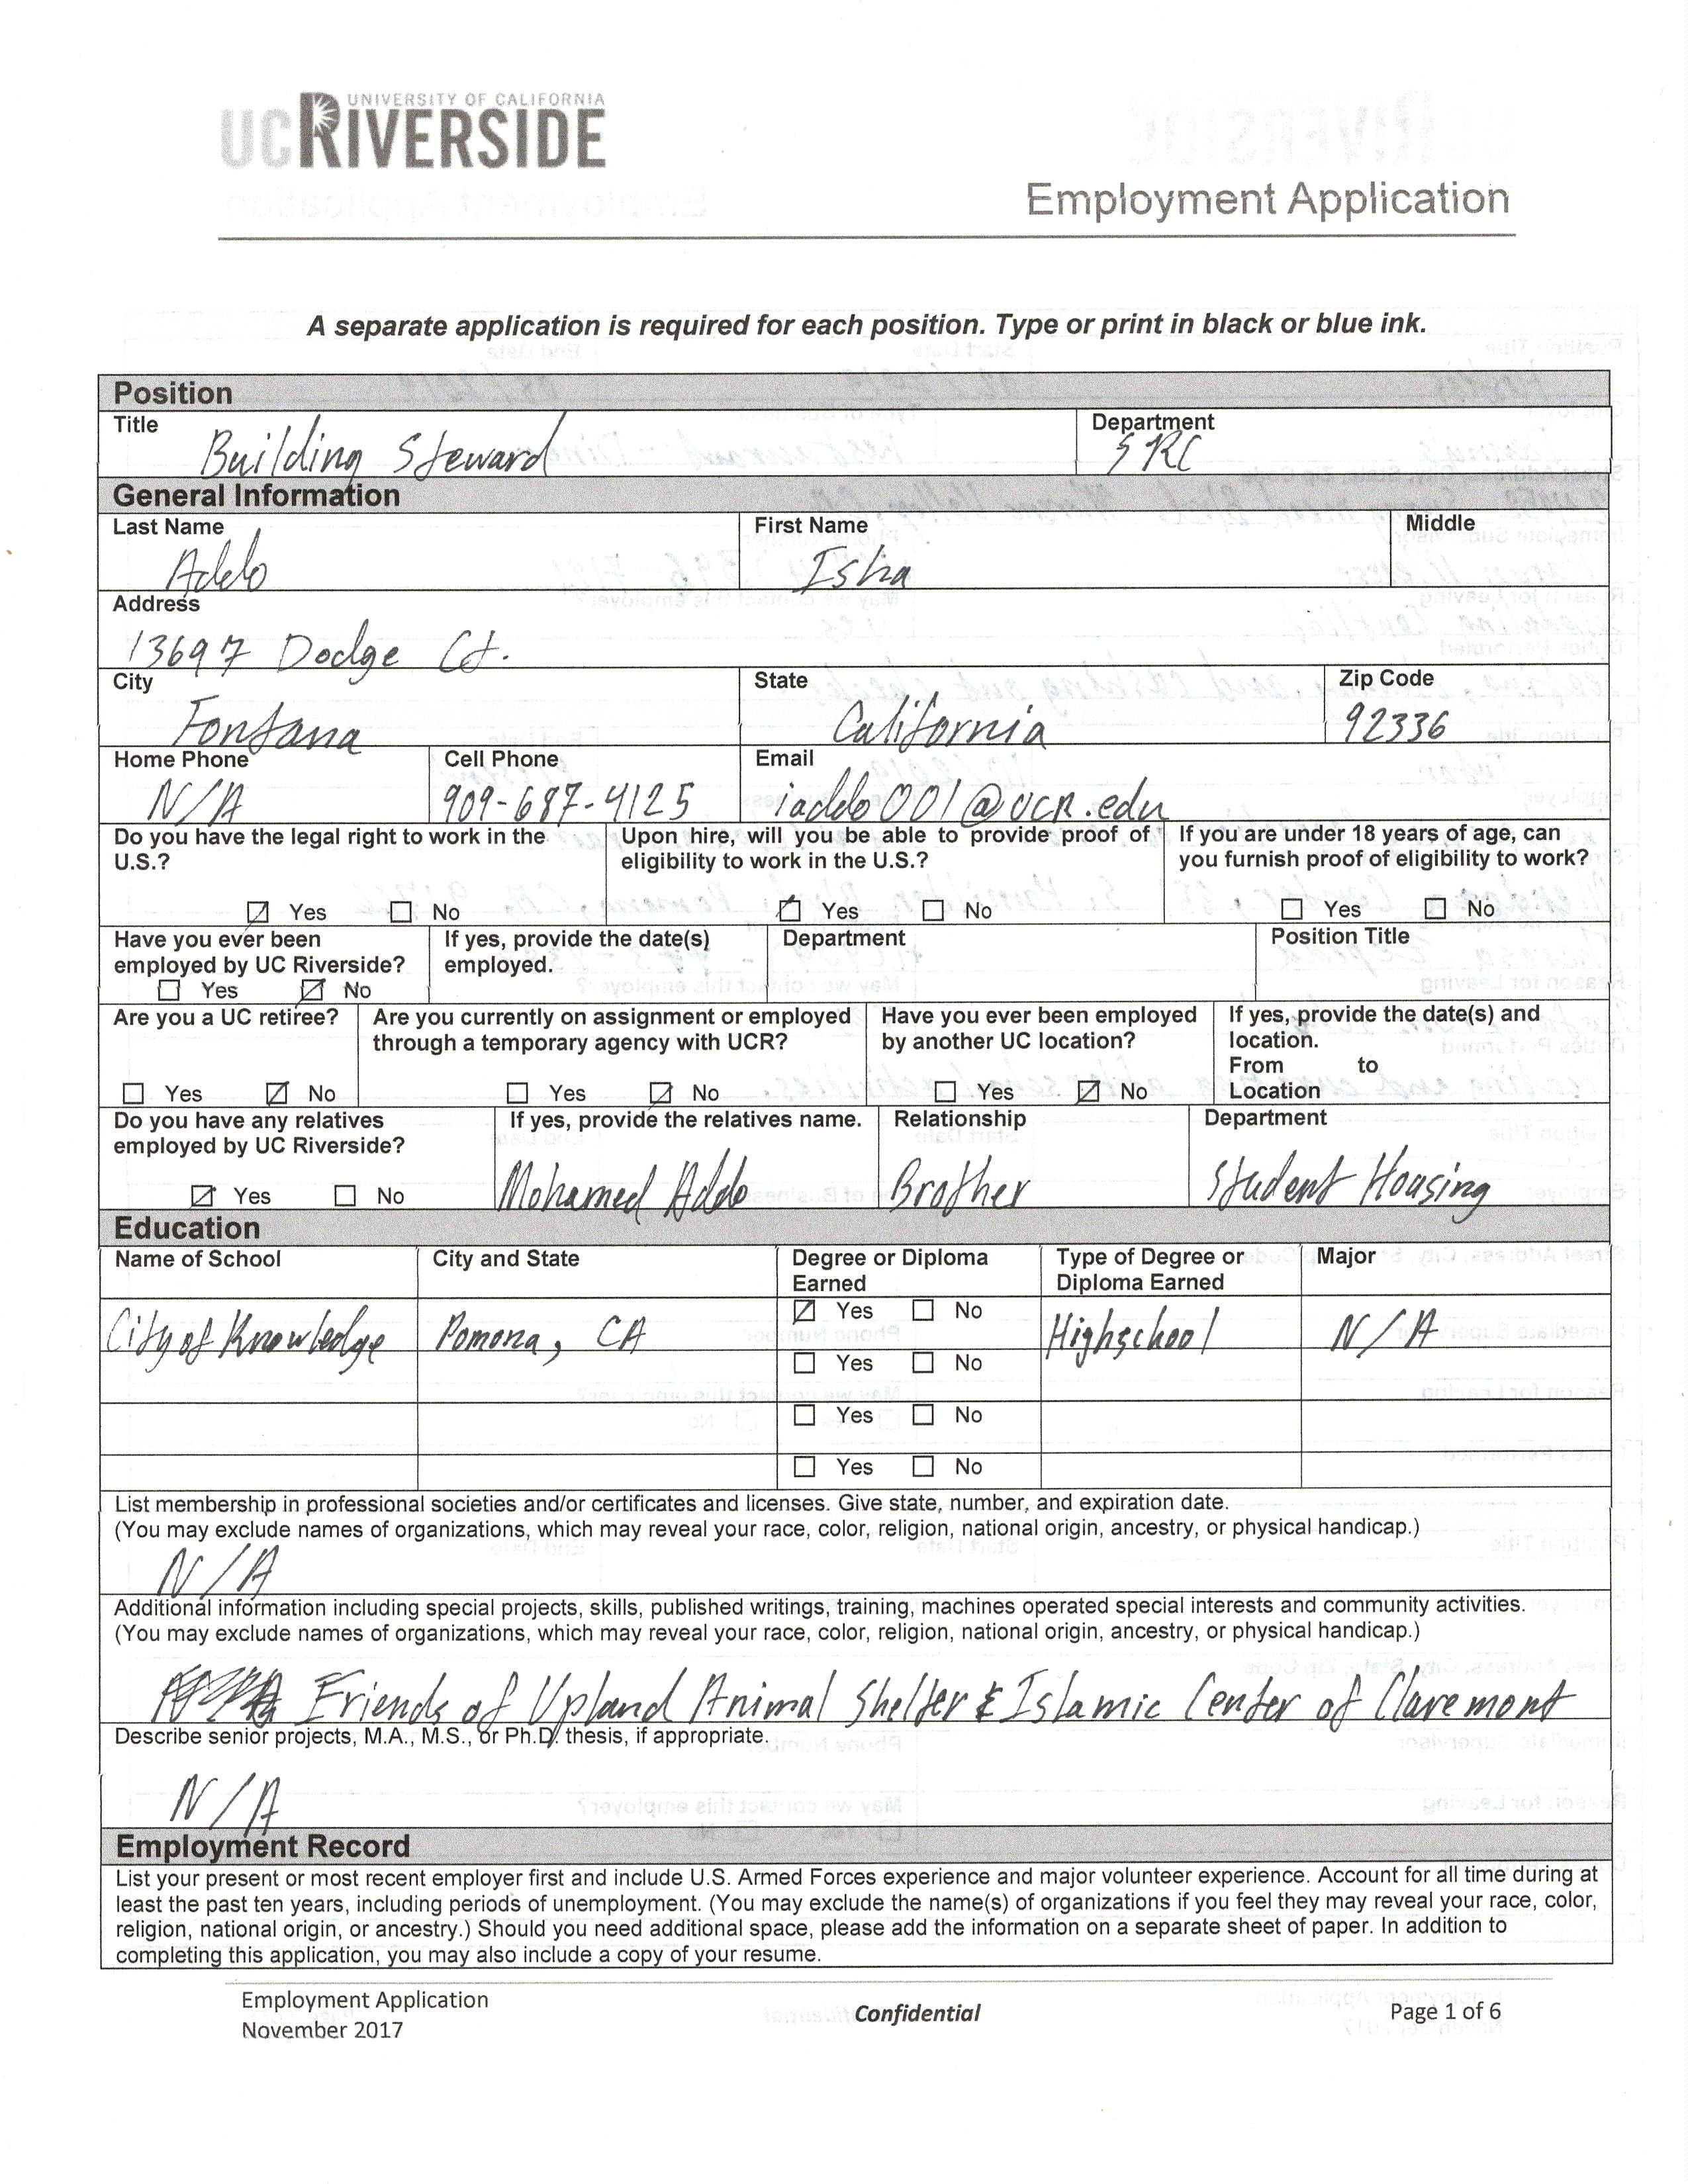 UNIVERSITY OF CALIFORNIA
UCRIVERSIDE
Employment Application
A separate application is required for each position. Type or print in black or blue ink.
Position
Title Department
Building Steward SRC
General Information
Last Name First Name Middle
Addo Isha
Address
13697 Dodge Ct.
City State Zip Code
Fontana California 92336
Home Phone Cell Phone Email
N/A 909-687-4125 iaddo001@ucr.edu
Do you have the legal right to work in the U.S.?
Yes No
Upon hire, will you be able to provide proof of eligibility to work in the U.S.?
Yes No
If you are under 18 years of age, can you furnish proof of eligibility to work?
Yes No
Have you ever been employed by UC Riverside?
Yes No
If yes, provide the date(s) employed.
Department
Position Title
Are you a UC retiree?
Yes No
Are you currently on assignment or employed through a temporary agency with UCR?
Yes No
Have you ever been employed by another UC location?
Yes No
If yes, provide the date(s) and location.
From to
Location
Do you have any relatives employed by UC Riverside?
Yes No
If yes, provide the relatives name.
Mohamed Addo
Relationship
Brother
Department
Student Housing
Education
Name of School City and State Degree or Diploma Earned Type of Degree or Diploma Earned Major
City of Knowledge Pomona, CA Yes No Highschool N/A
Yes No
Yes No
Yes No
List membership in professional societies and/or certificates and licenses. Give state, number, and expiration date.
(You may exclude names of organizations, which may reveal your race, color, religion, national origin, ancestry, or physical handicap.)
N/A
Additional information including special projects, skills, published writings, training, machines operated special interests and community activities.
(You may exclude names of organizations, which may reveal your race, color, religion, national origin, ancestry, or physical handicap.)
Friends of Upland Animal Shelter & Islamic Center of Claremont
Describe senior projects, M.A., M.S., or Ph.D. thesis, if appropriate.
N/A
Employment Record
List your present or most recent employer first and include U.S. Armed Forces experience and major volunteer experience. Account for all time during at
least the past ten years, including periods of unemployment. (You may exclude the name(s) of organizations if you feel they may reveal your race, color,
religion, national origin, or ancestry.) Should you need additional space, please add the information on a separate sheet of paper. In addition to
completing this application, you may also include a copy of your resume.
Employment Application
November 2017
Confidential
Page 1 of 6